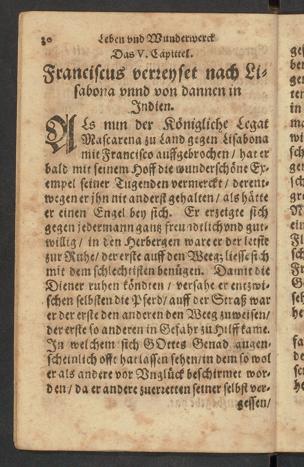 30 Leben vnd Wunderwerck
Das V. Capittel.
Franciscus verreyset nach Li-
sabona vnnd von dannen in
Indien.
ALs nun der Königliche Legat
Mascarena zu Land gegen Lisabona
mit Francisco auffgebrochen / hat er
bald mit seinem Hoff die wunderschöne Ex-
empel seiner Tugenden vermerckt / derent-
wegen er jhn nit anderst gehalten / als hätte
er einen Engel bey sich. Er erzeigte sich
gegen jedermann gantz freundtlich vnd gut-
willig / in den Herbergen ware er der letste
zur Ruhe / der erste auff den Weeg / liesse sich
mit dem schlechisten benügen. Damit die
Diener ruhen köndten / versahe er entzwi-
schen selbsten die Pferd / auff der Straß war
er der erste den anderen den Weeg zuweisen /
der erste so anderen in Gefahr zu Hilff kame.
In welchem sich GOttes Genad augen-
scheinlich offt hat lassen sehen / in dem so wol
er als andere vor Vnglück beschirmet wor-
den / da er andere zuerretten seiner selbst ver-
gessen /